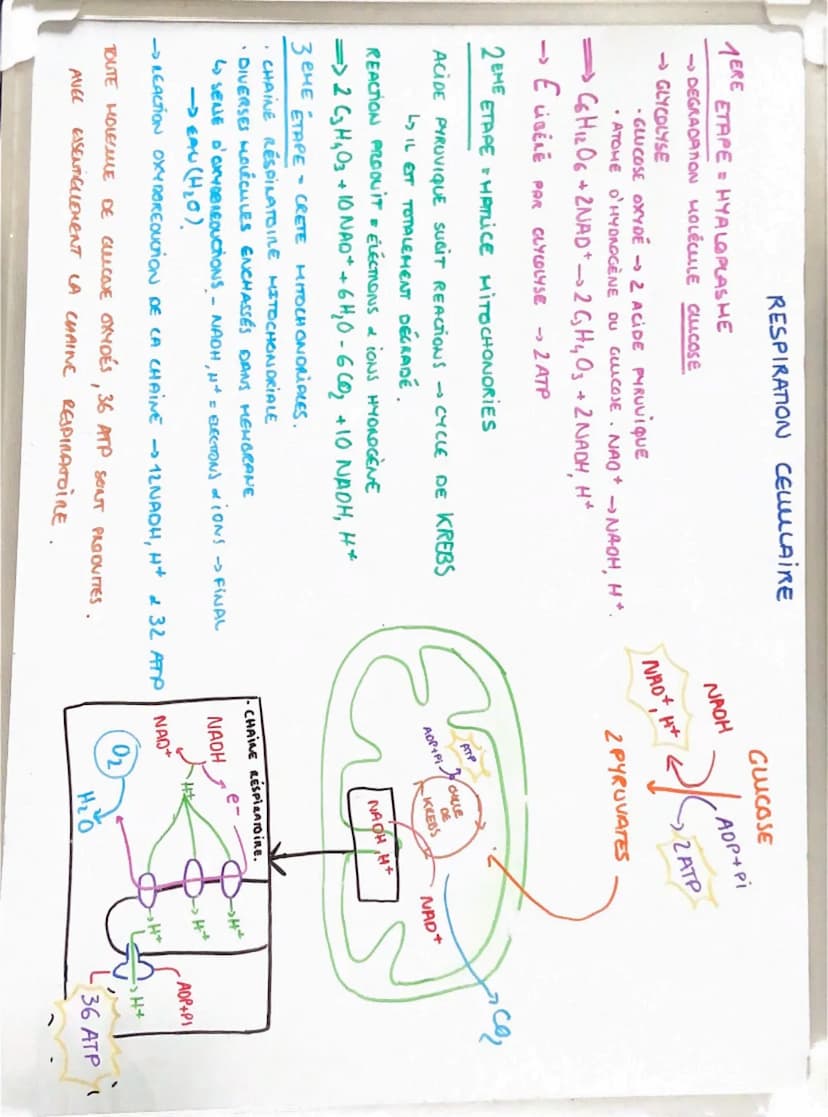 RESPIRATION CELLULAIRE
1ERE ETAPE = HYALOPLASME
→ DEGRADATION MOLÉCULE GLUCOSE
→ GLYCOLYSE
· GLUCOSE OXYDÉ → 2 ACIDE PYRUVIQUE
· ATOME D'HYDROGÈNE DU GLUCOSE. NAD+ → NADH, H+.
⇒ C6H12O6 + 2NAD+ → 2 C3H4O3 + 2NADH, H+
→ E LIBÉRÉ PAR GLYCOLYSE → 2 ATP
2EME ETAPE = MATRICE MITOCHONDRIES
ACIDE PYRUVIQUE SUBIT REACTIONS → CYCLE DE KREBS
↳ IL EST TOTALEMENT DÉGRADÉ.
REACTION PRODUIT = ÉLECTRONS & IONS HYDROGÈNE
⇒ 2 C3H4O3 + 10 NAD+ + 6 H2O - 6 CO2 + 10 NADH, H+
3EME ÉTAPE - CRETE MITOCHONDRIALES.
· CHAINE RÉSPIRATOIRE MITOCHONDRIALE
· DIVERSES MOLÉCULES ENCHASSÉS DANS MEMBRANE
↳ SERIE D'OXYDOREDUCTIONS - NADH, H+ = ELECTRONS & IONS → FINAL
→ EAU (H2O).
→ REACTION OXYDOREDUCTION DE LA CHAINE → 12 NADH, H+ & 32 ATP
TOUTE MOLECULE DE GLUCOSE OXYDÉS, 36 ATP SONT PRODUITES.
AVEC ESSENTIELLEMENT LA CHAINE RESPIRATOIRE.
GLUCOSE
NADH
ADP+Pi
NAD+, H+
2 ATP
2 PYRUVATES
ATP
ADP+Pi
CYCLE
DE
KREBS
NADH, H+
NAD+
CO2
· CHAINE RÉSPIRATOIRE.
NADH
e-
NAD+
H+
O2
H2O
→ H+
→ H+
→ H+
ADP+Pi
→ H+
36 ATP